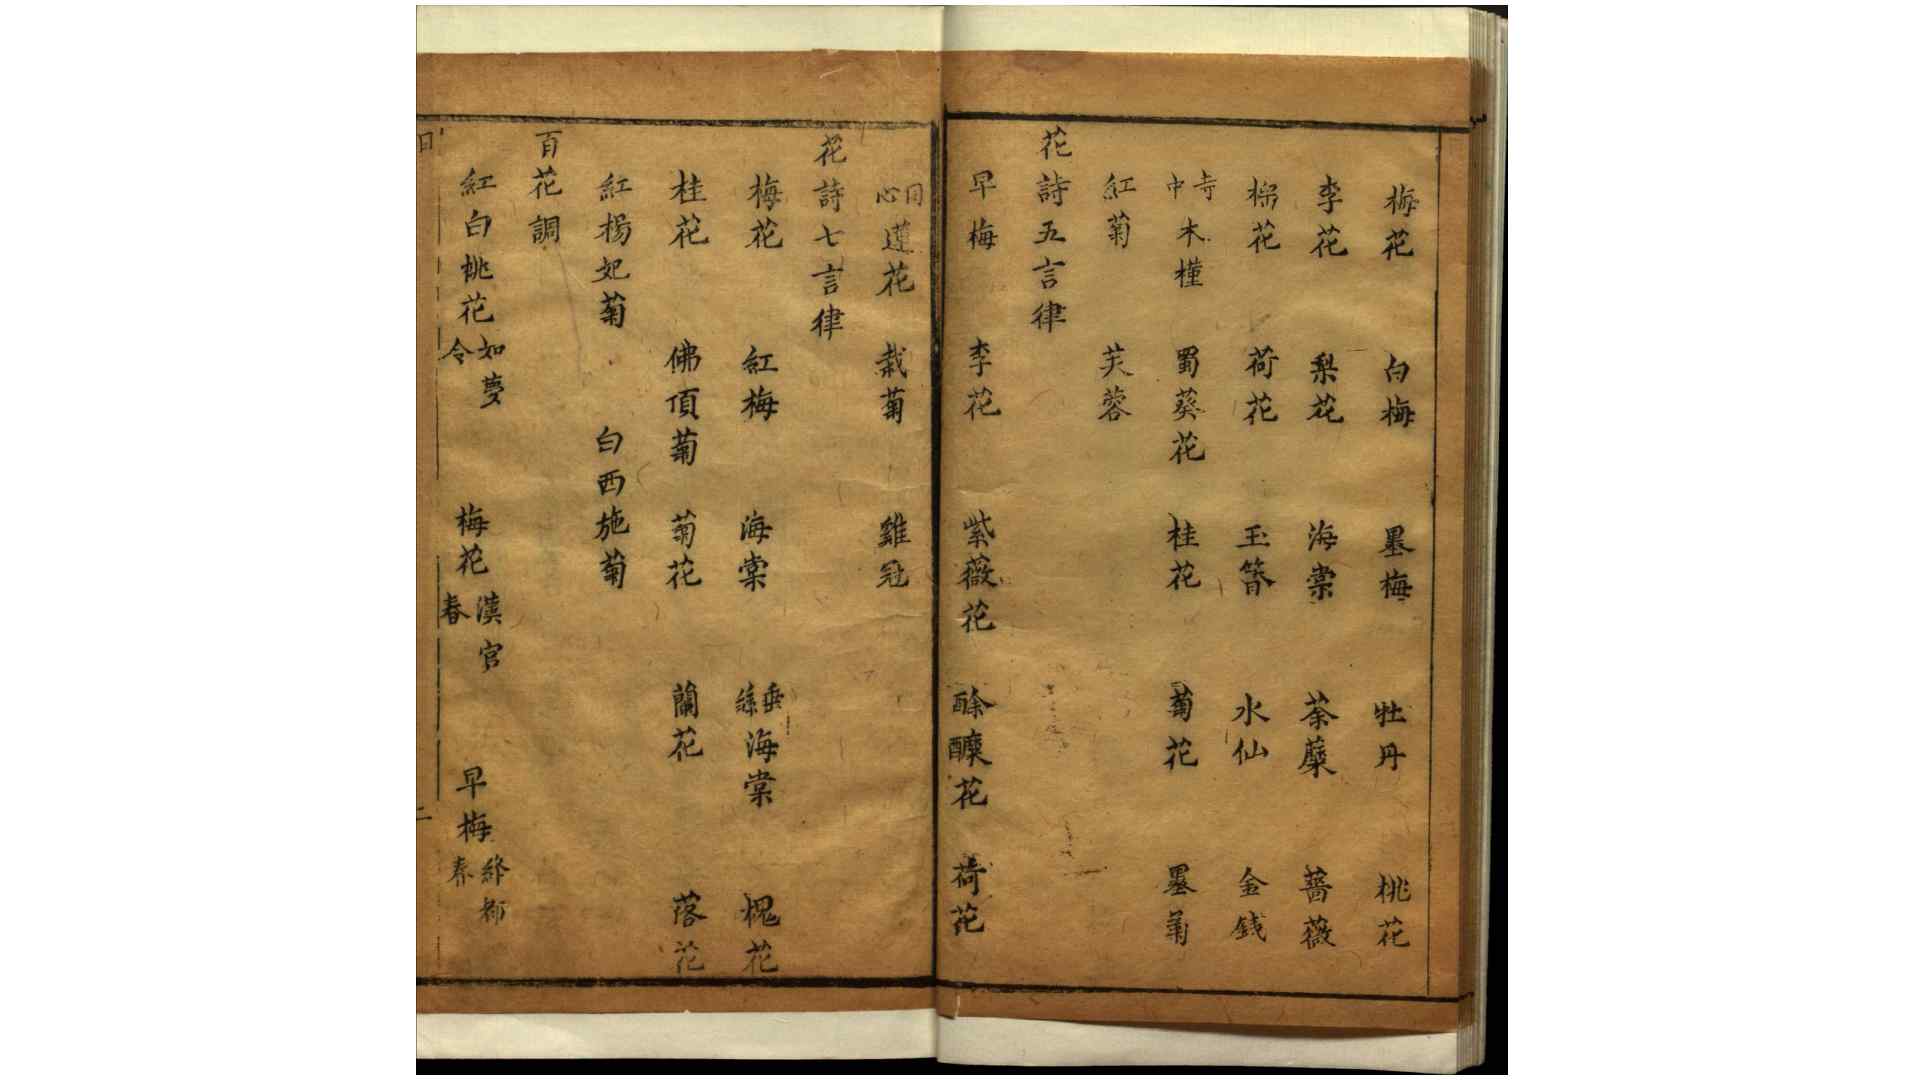 梅花 白梅 墨梅 牡丹 桃花
李花 梨花 海棠 荼蘼 薔薇
榴花 荷花 玉簪 水仙 金錢
寺中木槿 蜀葵花 桂花 菊花 墨菊
紅菊 芙蓉
花詩五言律
早梅 李花 紫薇花 酴醾花 荷花
同心蓮花 栽菊 雞冠
花詩七言律
梅花 紅梅 海棠 垂絲海棠 槐花
桂花 佛頂菊 菊花 蘭花 落花
紅楊妃菊 白西施菊
百花調
紅白桃花如夢令 梅花漢宮春 早梅絳都春